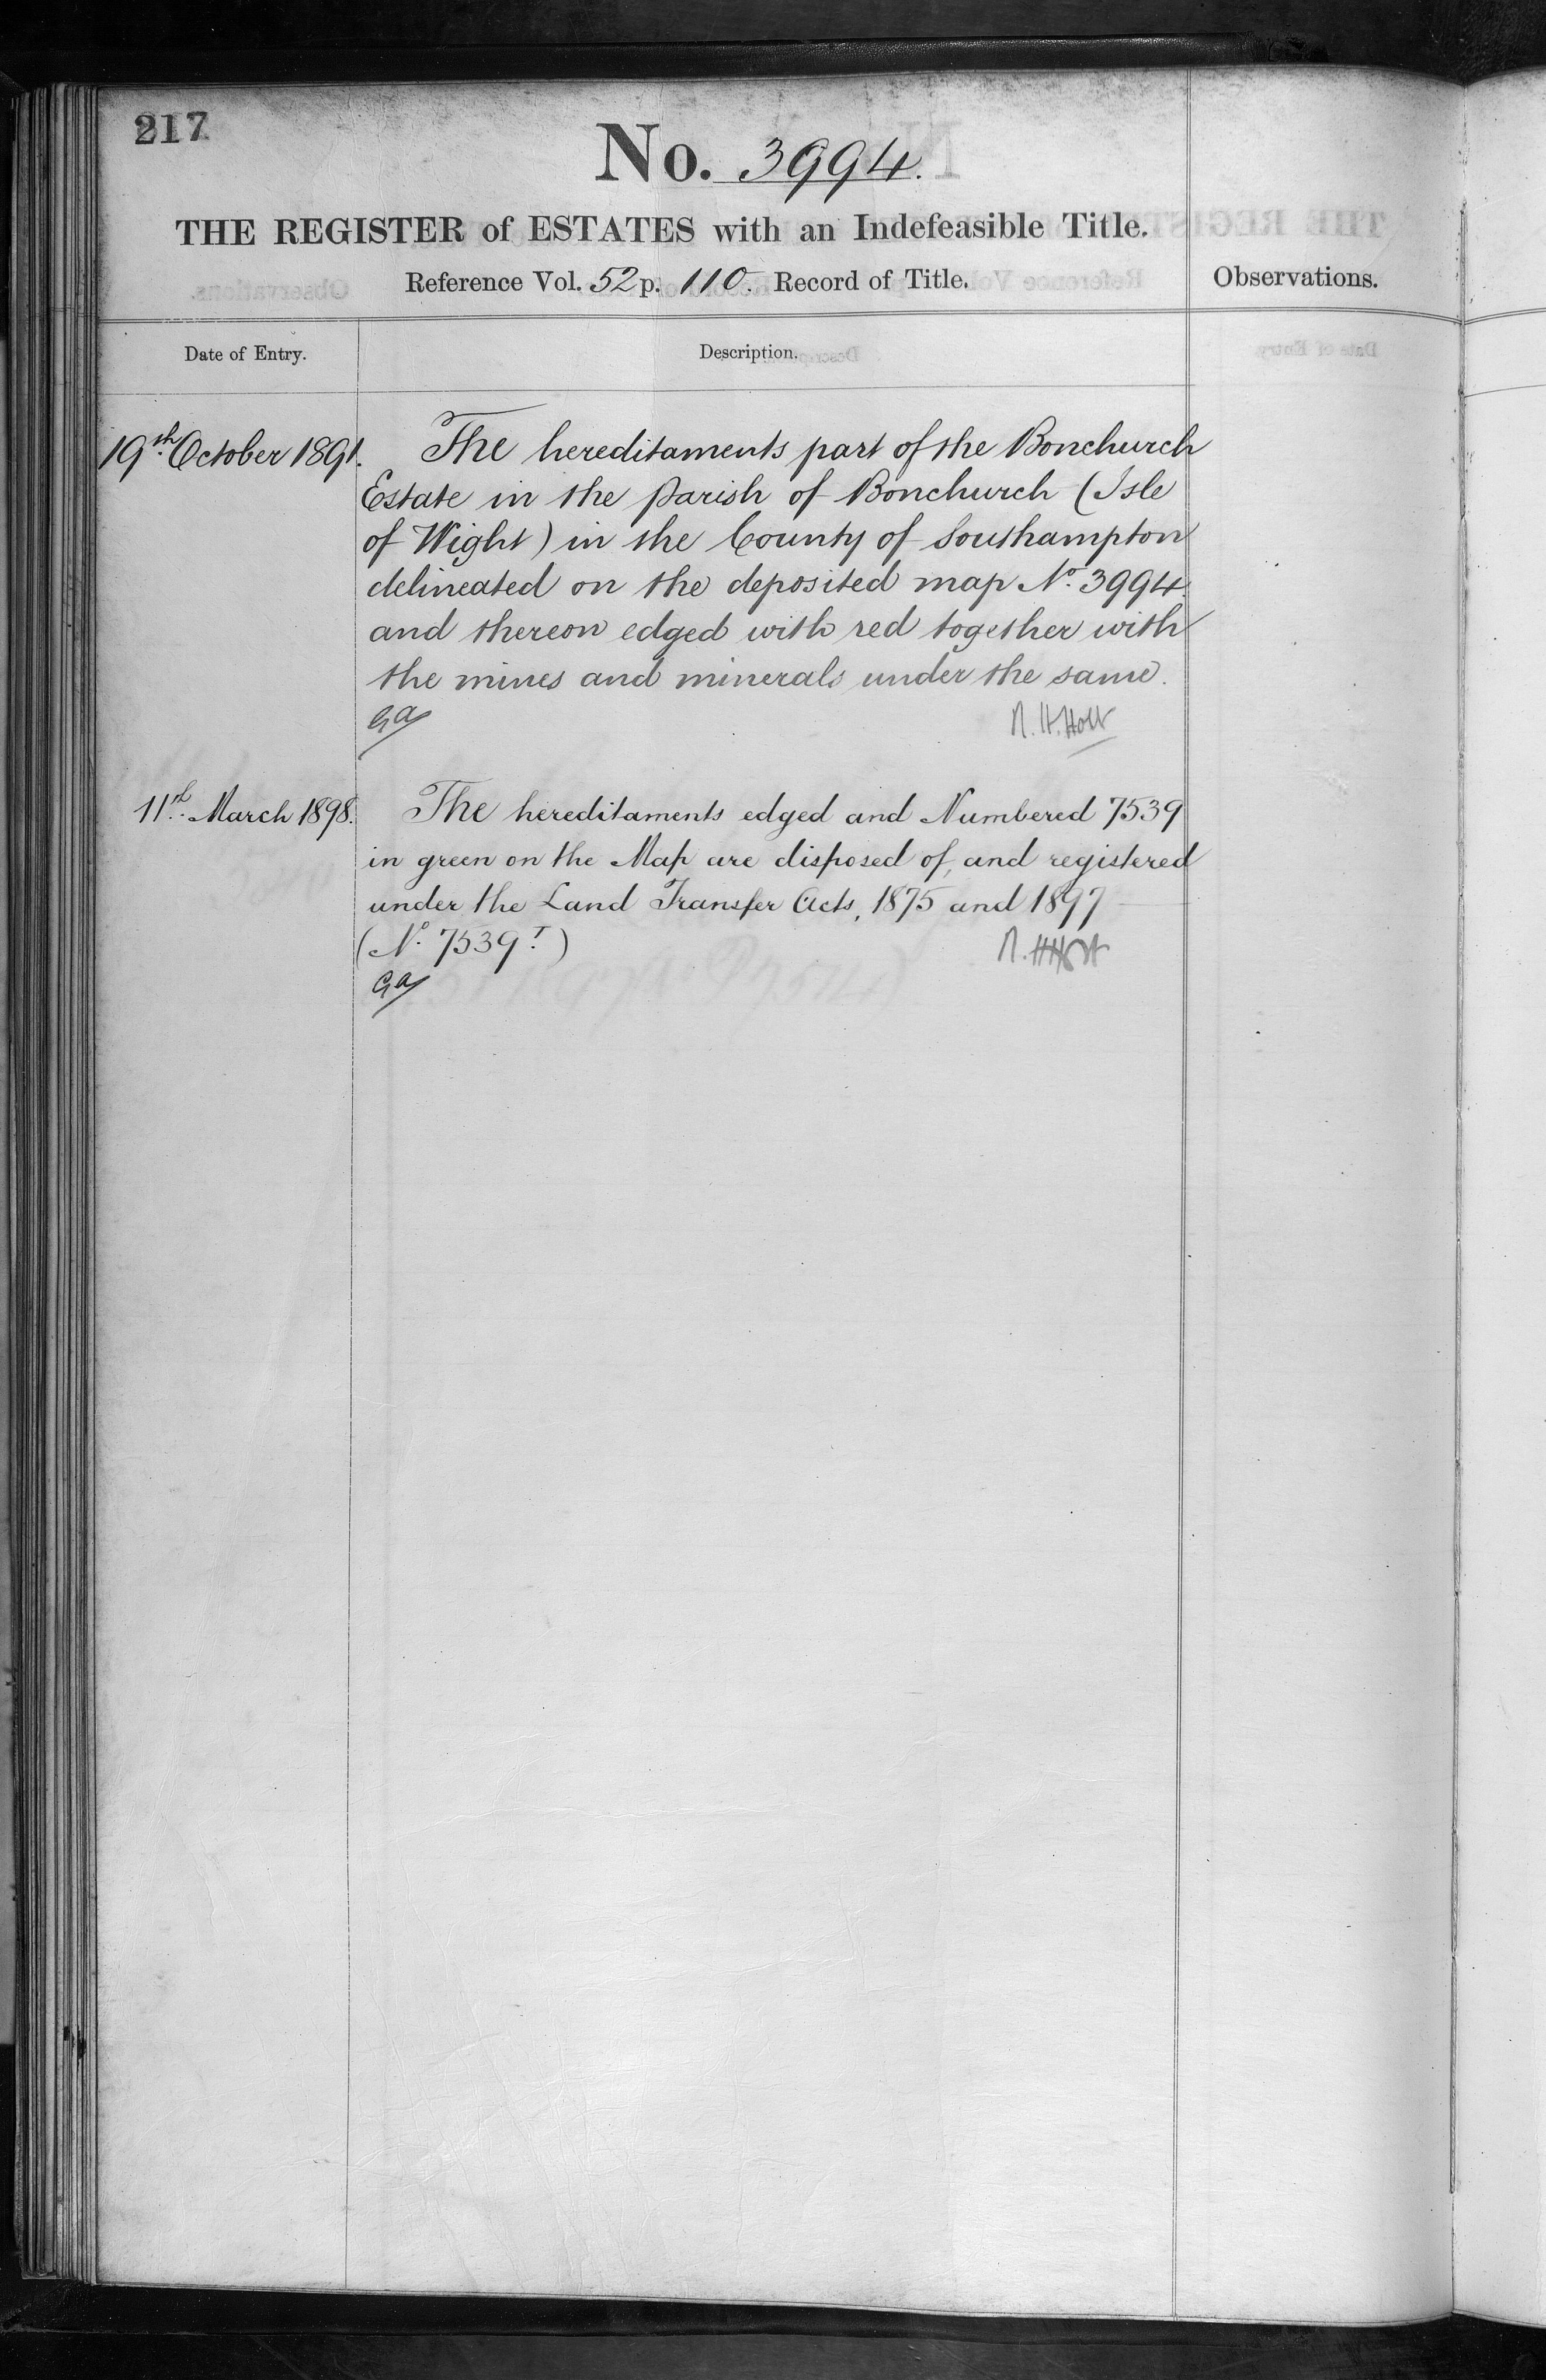 217
No. 3994.
THE REGISTER of ESTATES with an Indefeasible Title.
Reference Vol. 52 p. 110. Record of Title.
Observations.
Date of Entry.
Description.
19th October 1891.
The hereditaments part of the Bonchurch
Estate in the parish of Bonchurch (Isle
of Wight) in the County of Southampton
delineated on the deposited map No. 3994
and thereon edged with red together with
the mines and minerals under the same.
Ga
R. H. Holt
11th March 1898.
The hereditaments edged and Numbered 7539
in green on the Map are disposed of, and registered
under the Land Transfer Acts, 1875 and 1897
(No. 7539 T)
Ga
R. H Holt